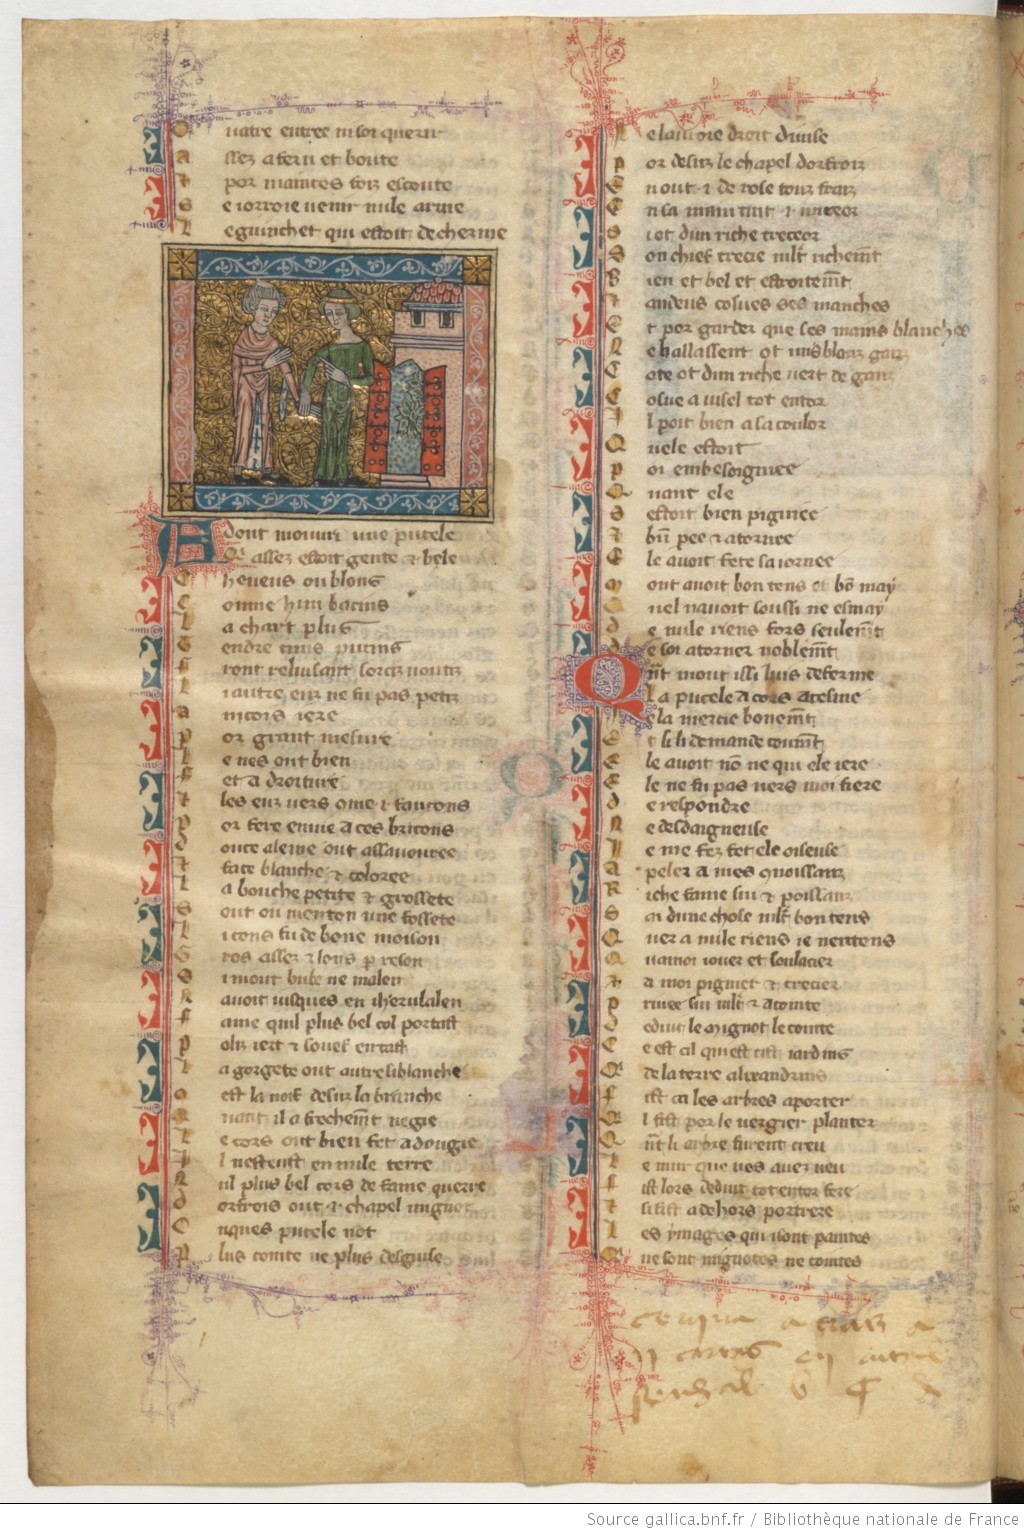 Q uatre entree ni soi querir
A ssez a feru et boute
T por maintes foiz escoute
S e iorroie uenir nule arme
L e guinchet qui estoit de cherme
A dont mouuri une pucele
Q' assez estoit gente & bele
C heueus ou blons
C onme .i. bacins
L a char plus
tendre
f ront reluisant sorciz uoutiz
L i autre euz ne fu pas petiz
a incois iere
p or grant mesure
L e nes ont bien
f et a droiture
L es euz uers come .i. faucons
p or fere enuie a ces bricons
d ouce aleine out assauouree
f ace blanche & coloree
L a bouche petite & grossete
S out ou menton une fossete
L i cons fu de bone moison
G ros assez & lons p reson
S i mout bube ne malen
N auoit iusques en iherusalen
f ame qui plus bel col portast
p oliz iert & souef en tast
L a gorgete out autresi blanche
c est la noif desus la branche
Q uant il a frechement negie
L e cors out bien fet a dougie
I l nesteust en nule terre
N ul plus bel cors de fame querre
d orfrois out .i. chapel mignot
O nques pucele not
P lus cointe ne plus desguise
N e lauroie droit diuise
p or desuz le chapel dorfroiz
G out .i. de rose touz fraiz
E n sa main tint .i. mireor
S iot dun riche treceor
S on chief trecie mlt richemt
B ien et bel et estroitemt
t andeus cosues ses manches
E t por garder que ses mains blanches
N e hallassent ot uns blanz ganz
C ote ot dun riche uert de ganz
C osue a uisel tot entor
I l poit bien a sa coulor
Q uele estoit
p oi embesoigniee
Q uant ele
s estoit bien pigniee
t bn pee & atornee
E le auoit fete sa iornee
m ont auoit bon tens et bon may
Q uel nauoit soussi ne esmay
d e nule riens fors seulemt
d e soi atorner noblemt
Q nt mout issi luis deferme
L a pucele a cors acesme
ie la mercie bonemt
& t li demande coumt
E le auoit non ne qui ele iere
E le ne fu pas uers moi fiere
d e respondre
N e desdaigneuse
I e me fez fet ele oiseuse
A peler a mes quoissanz
R iche fame sui & poissanz
S ai dune chose mlt bon tens
Q uer a nule riens ie nentens
Q ua moi iouer et soulacier
t a moi pignier & trecier
P riuee sui mlt & acointe
d e duit le mignot le cointe
C e est cil qui est cist iardins
Q' de la terre alixandrins
f ist ca les arbres aporter
Q l fist por le uergier planter
Q nt li arbre furent creu
L e mur que uos auez ueu
f ist lors deduit tot entor fere
S i fist a dehors portrere
L es ymages qui i sont paintes
Q ne sont mignotes ne cointes
Source gallica.bnf.fr / Bibliothèque nationale de France